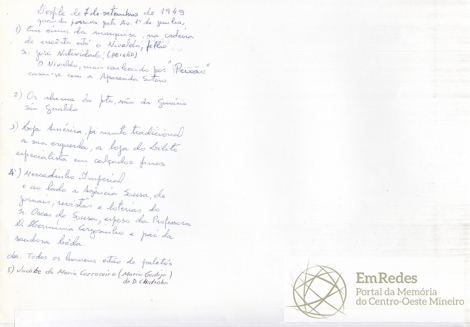 Desfile de 7 de setembro de 1949
quando passava pela Av. 1º de Junho,
1) Em cima da marquise, na cadeira
de está o Nivaldo, filho
Sr. José Natividade,
O Nivaldo, mais conhecido por "Peixão"
casou-se com a Aparecida
2) Os alunos da foto, são do Ginásio
São Geraldo
3) Loja América, foi muito tradicional
a sua esquerda, a loja do
especialista em calçados finos
4) Mercadinho Imperial
e ao lado a Agência Sousa, de
jornais, revistas e loterias do
Sr Oscar de Sousa, esposo da Professora
D. Herminia Corgosinho e pai da
saudosa
Todos os homens estão de paletós
5) da Maria Carroceira (Maria
EmRedes
Portal da Memória
do Centro-Oeste Mineiro